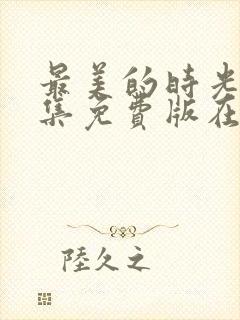 最美的時光
集免費版在
陸久之